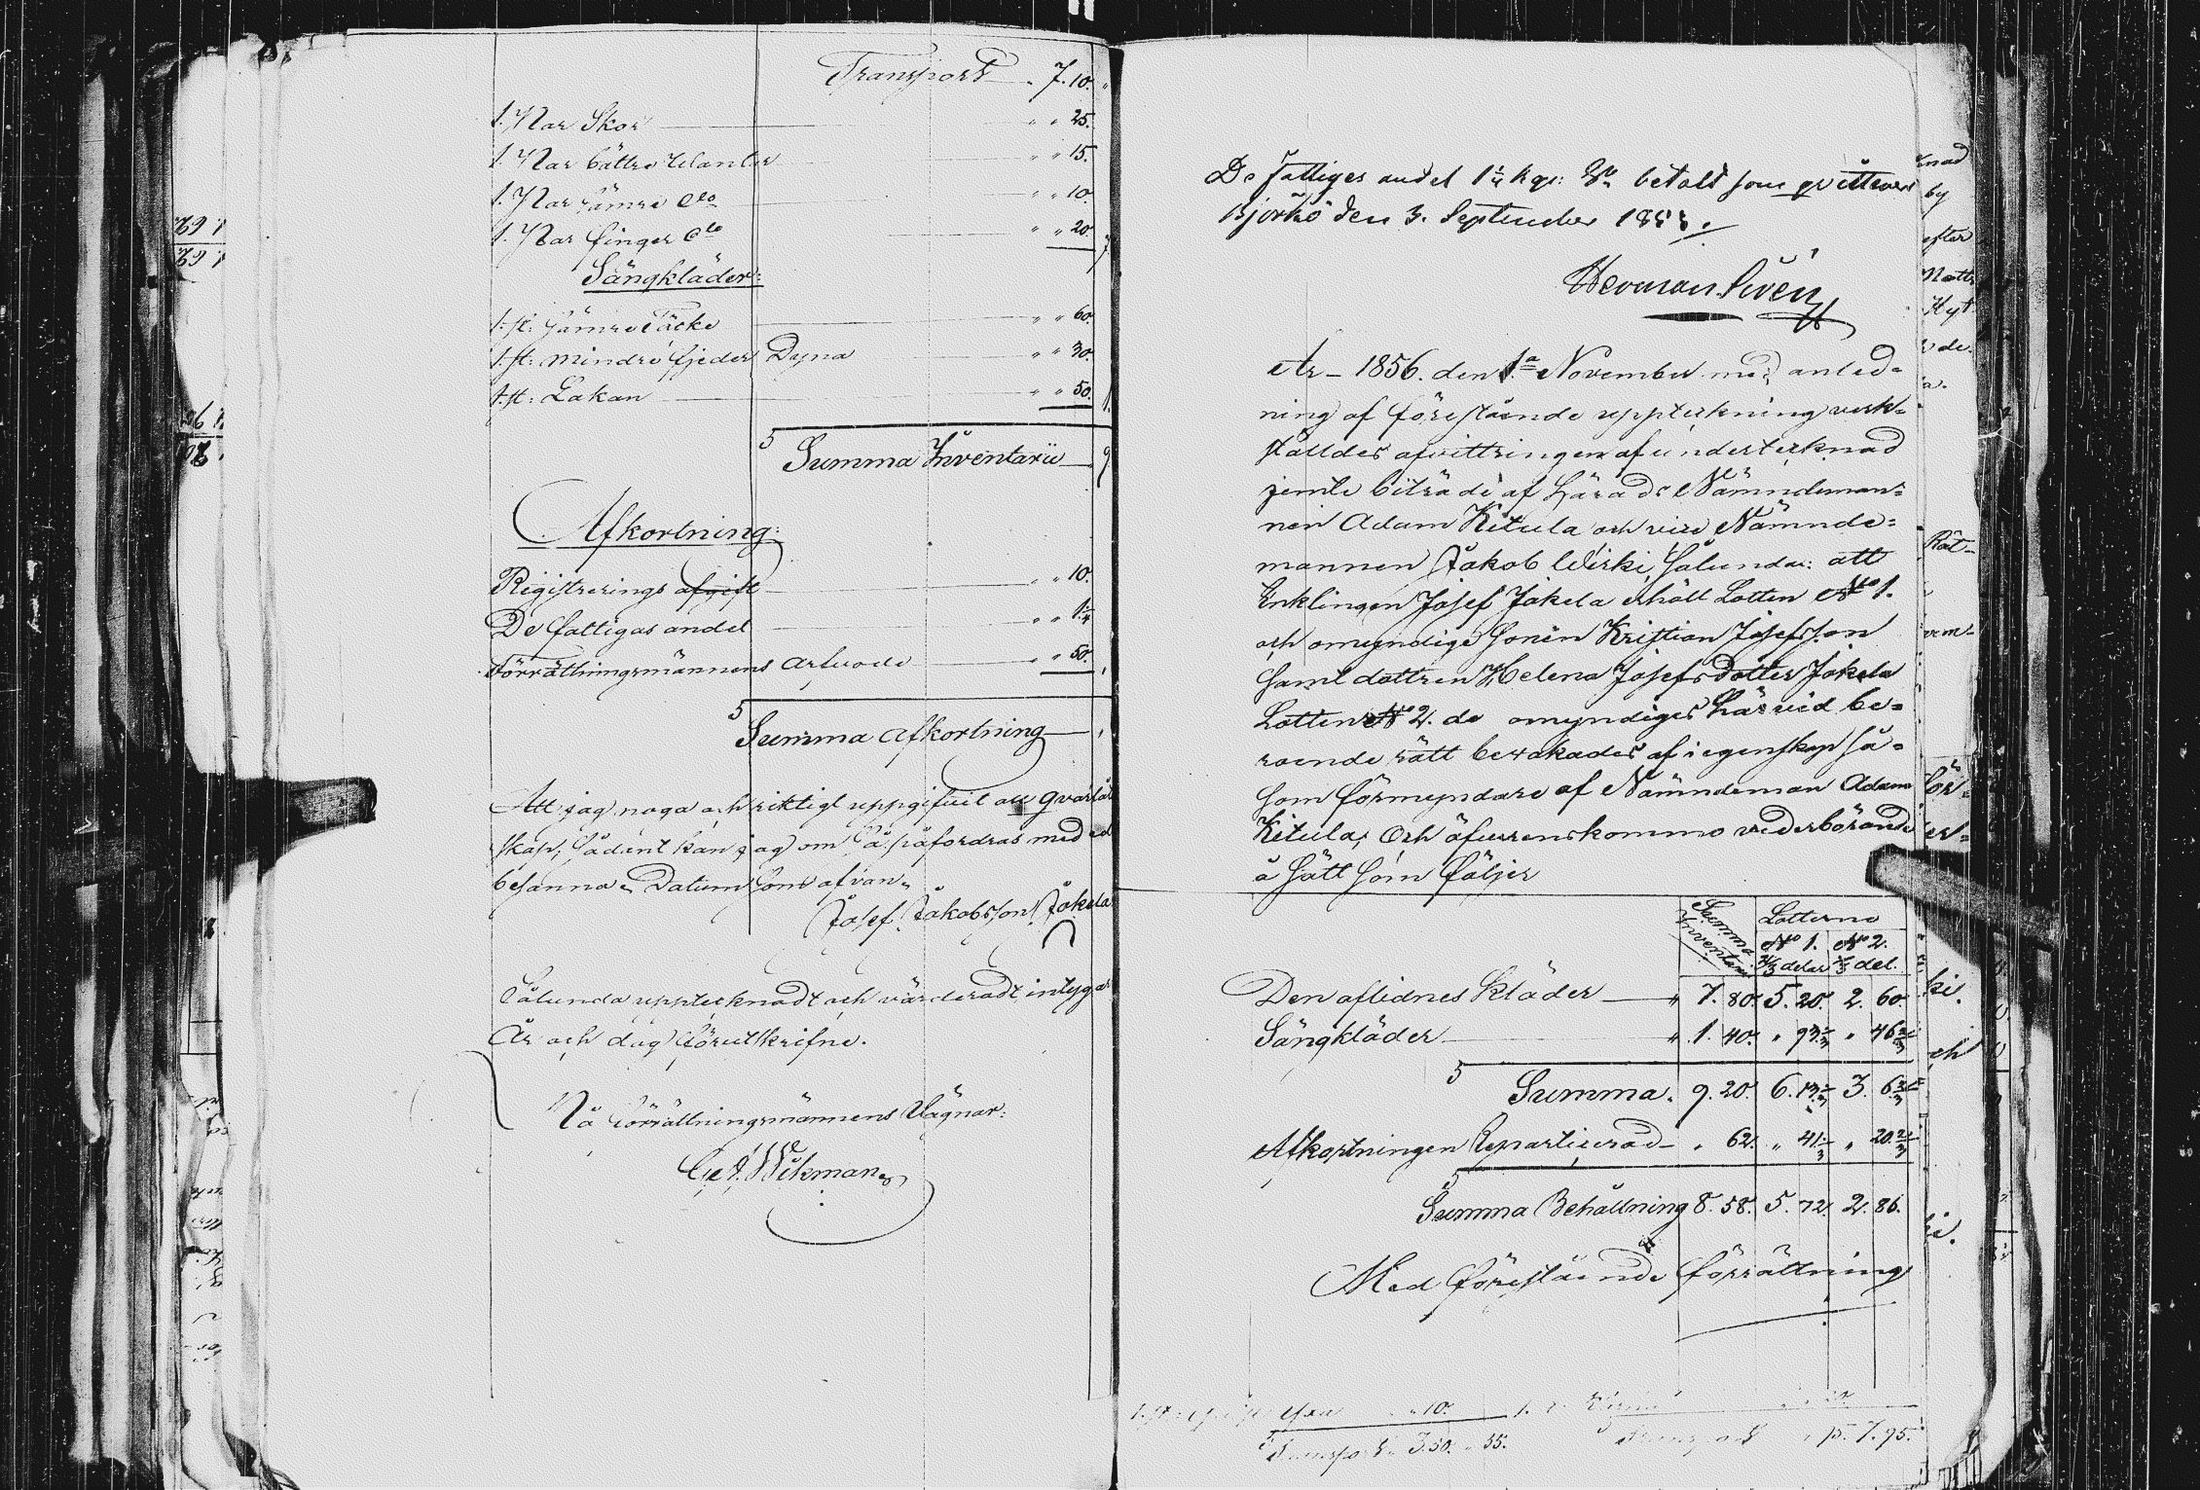 Transport " 7. 10.
1. Par Skor " " 25.
1. Par bättre Wantar " " 15.
1. Par sämre dlo " " 10.
1. Par finger dlo " " 20.
Sängkläder:
1. st: sämre Täcke " " 60.
1. st: mindre fjeder Dyna " " 30.
1. st: Lakan " " 50.
Summa Inventarii 9
Afkortning:
Registrerings afgift " " 10.
De fattigas andel " " 1 1/4
Förrättningsmännens arfvode " " 50.
Summa Afkortning
Att jag noga och riktigt uppgifvit all qvarlåt
skap, sådent kan jag om så påfordras med ed
besanna, Datum som ofvan.
Josef Jakobsson Jokela
Sålunda upptecknadt och värderadt, intygar
År och dag förutskrifne.
På förrättningsmännens Vägnar:
Wikman
De fattiges andel 1 1/4 kop: Sr betald som qvitteras
Björkö den 3. September 185
Herman
År 1856. den 1a November med anled=
ning af förestående uppteckning verk=
stäldes afvittringen af undertecknad
jemte biträde af Härads Nämndeman=
nen Adam Kitula och vice Nämnde=
mannen Jakob Wirki, sålunda: att
Enklingen Josef Jokela erhöll Lotten No 1.
och omyndige sonen Kristian Josefsson
samt dottren Helena Josefsdotter Jokela
Lotten No 2. de omyndiges härvid be=
roende rätt bevakades af i egenskap så=
som förmyndare af Nämndeman Adam
Kitula; Och öfverenskommo vederbörande
å sätt som följer
Summa Inventarii Lotterne
No 1. No 2.
2/3 delar 1/3 del.
Den aflidnes Kläder " 7. 80. 5. 20. 2. 60.
Sängkläder " 1. 40. " 93 1/3 " 46 2/3
Summa. 9. 20. 6. 13 1/3 3. 6 2/3
Afkortningen Repartierad " 62. " 41 1/3 " 20 2/3
Summa Behållning 8. 58. 5. 72. 2. 86.
Med föreståénde förrättning
Yxa " 10.
Transport 3.50. " 35.
7. 95.